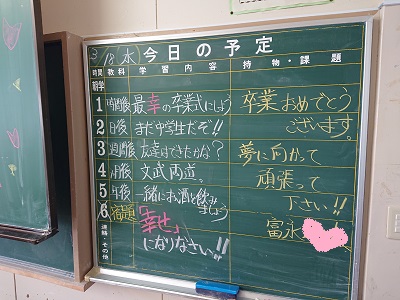 3/18 水 今日の予定
時間 教科 学習内容 持物・課題
朝学
1 時間後 最幸の卒業式にしよう 卒業おめでとう
2 日後 まだ中学生だぞ!! ございます。
3 週間後 友達はできたかな? 夢に向かって
4 月後 文武両道。 頑張って
5 年後 一緒にお酒を飲みましょう 下さい!!
6 宿題 「幸せ」 富永
になりなさい!!
連絡・その他